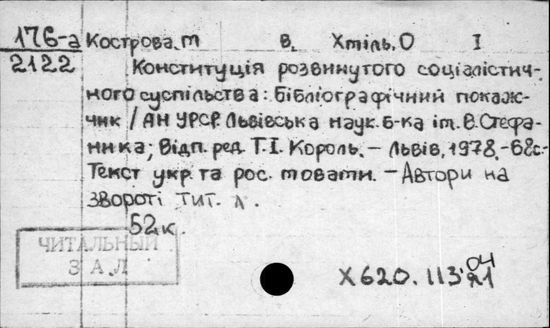 176-а Кострова.Т В. Хміль.О І
2122 Конституція розвинутого соціалістич-
ного суспільства: бібліографічний покаж-
чик / АН УРСР. Львівська наук. б-ка ім. В. Стефа-
ника; Відп. ред. Т.І. Король. – Львів, 1978. – 68с.-
Текст укр. та рос. мовами. – Автори на
звороті тит. л.
52к.
ЧИТАЛЬНЫЙ
ЗАЛ
04
Х620.113'21